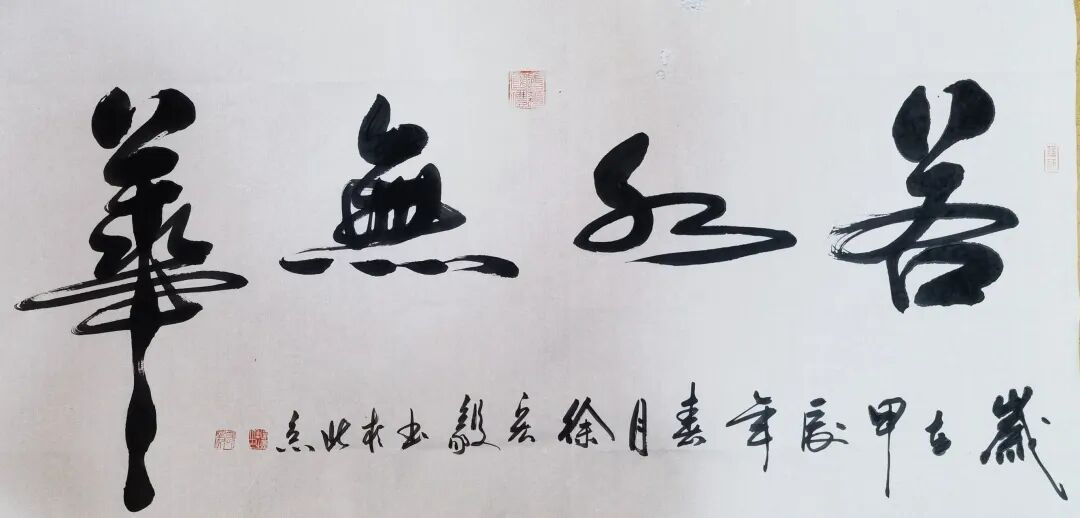 若水無華
歲在甲辰年春月徐毅书於北京